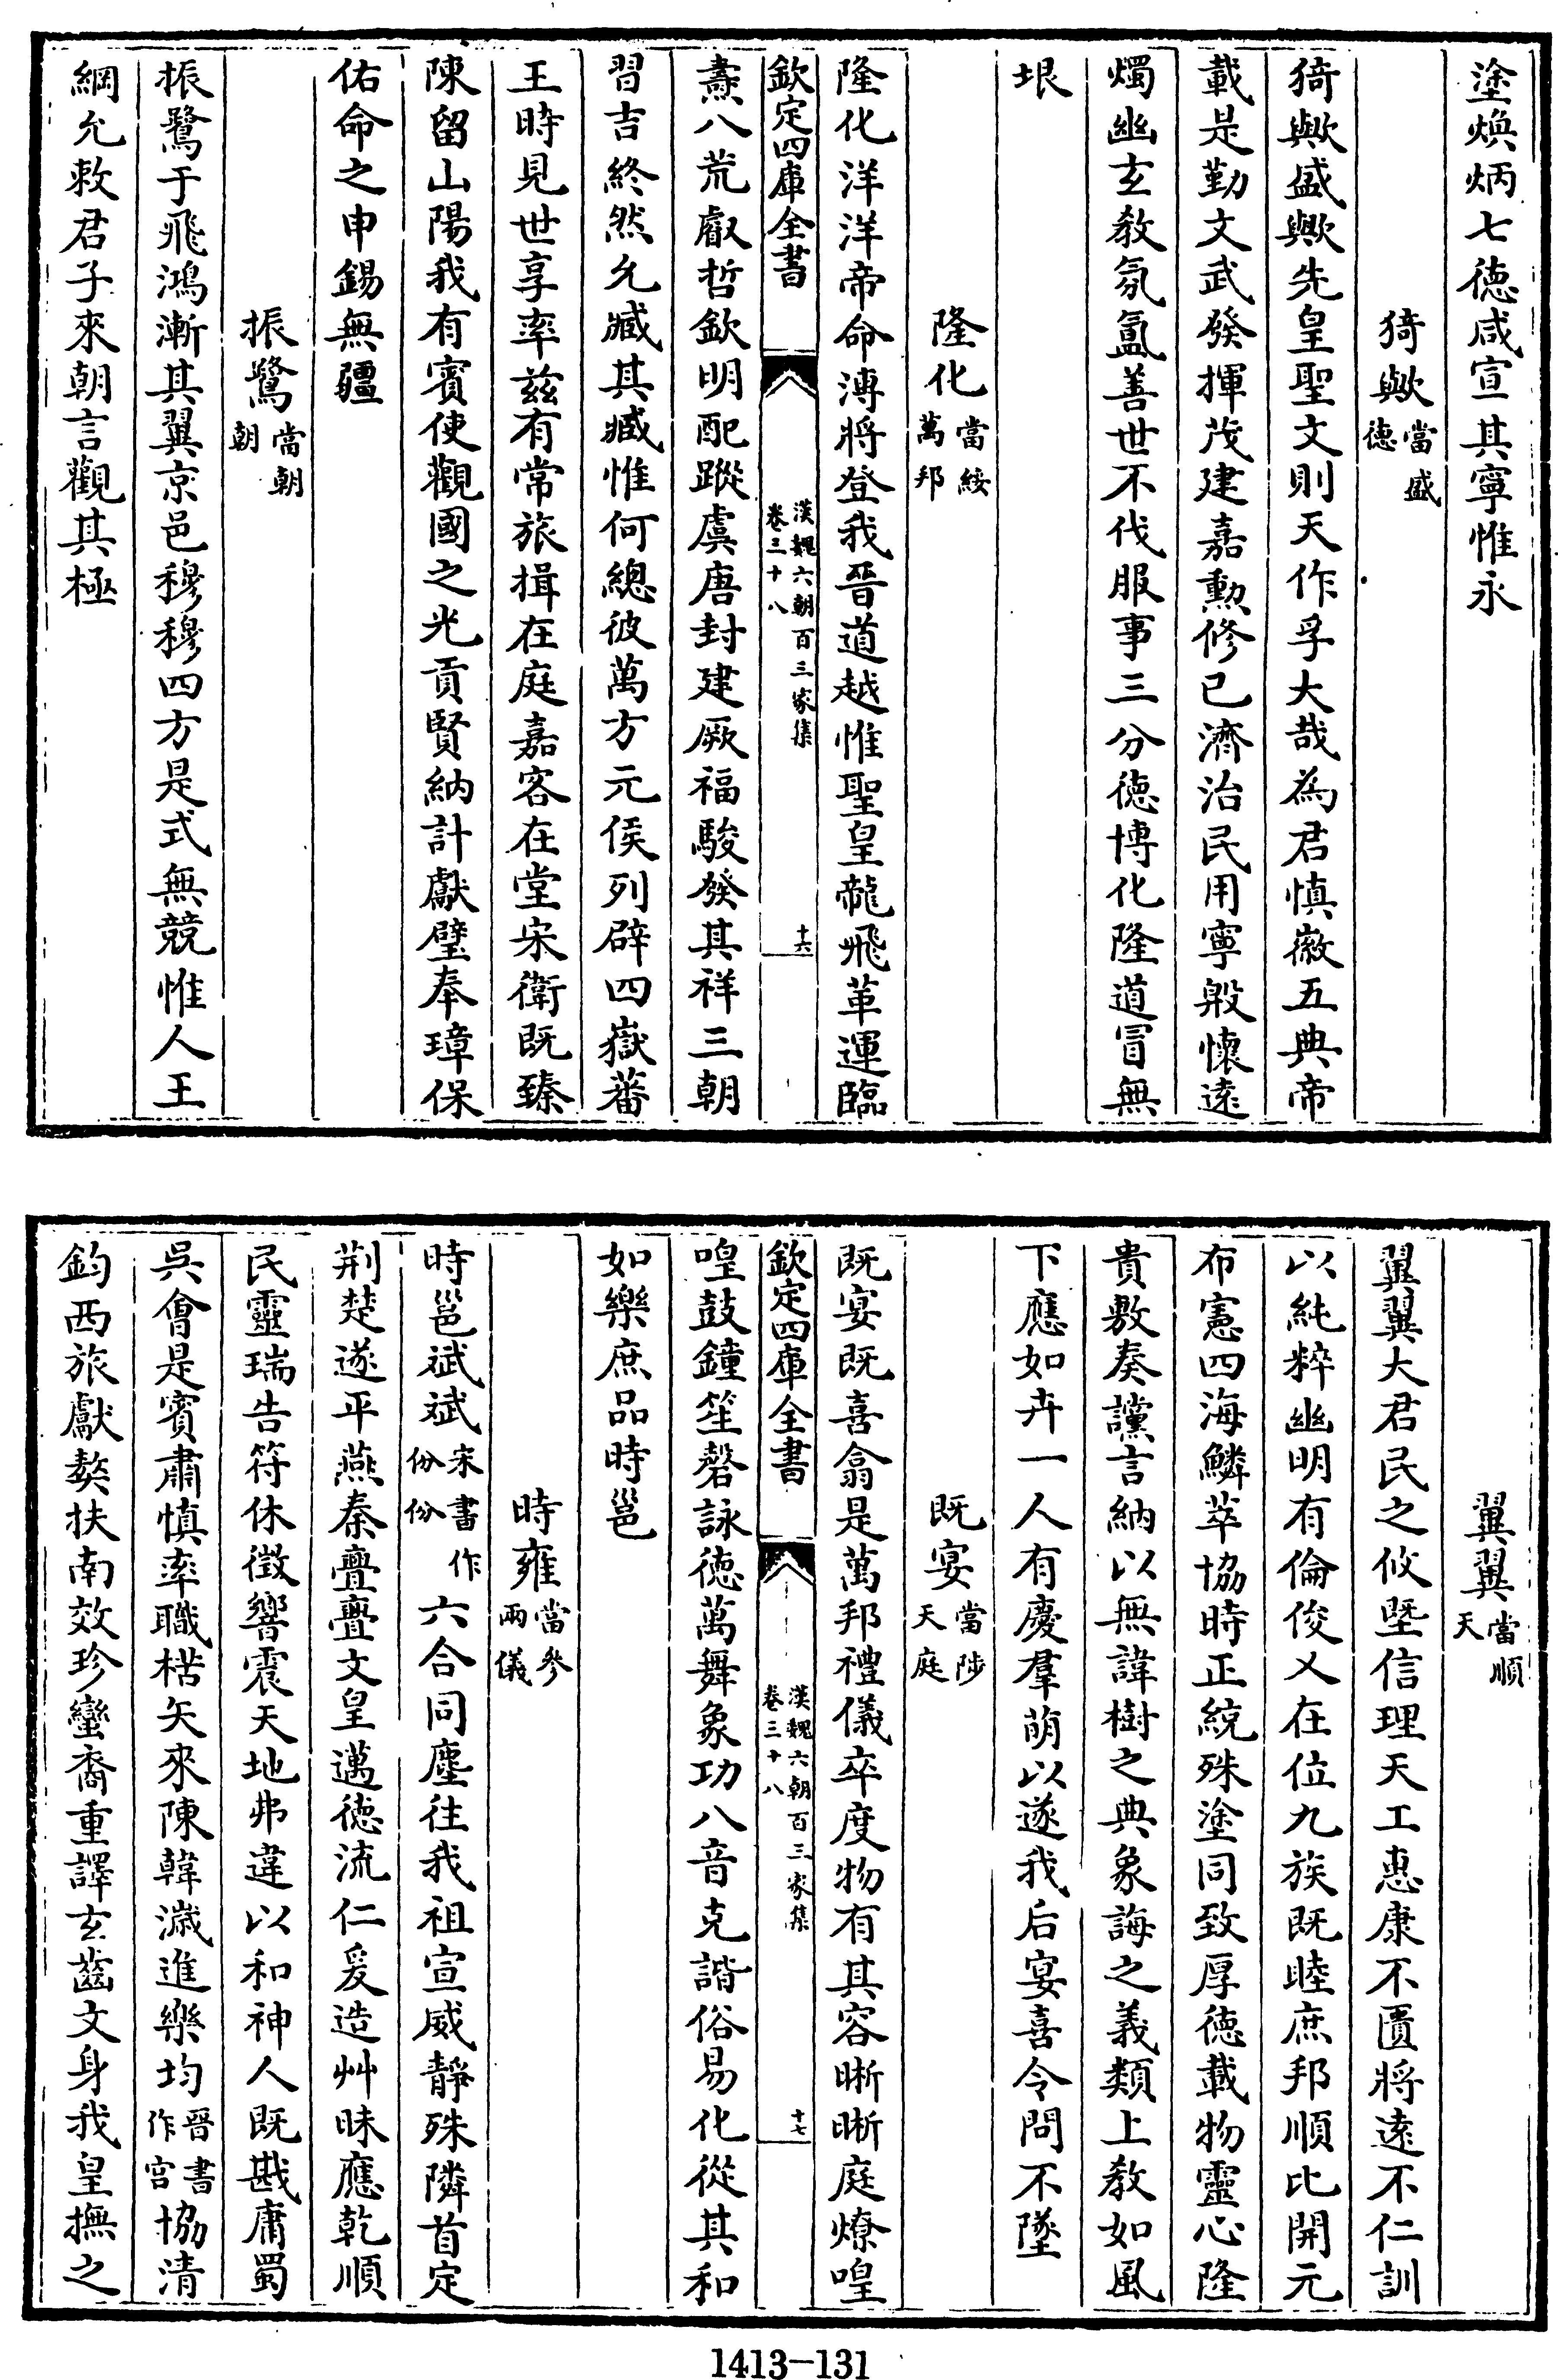 塗煥炳七德咸宣其寧惟永
猗歟當盛德
猗歟盛歟先皇聖文則天作孚大哉為君慎徽五典帝
載是勤文武發揮茂建嘉勲修已濟治民用寧殷懷遠
燭幽玄教氛氳善世不伐服事三分德博化隆道冒無
垠
隆化當綏萬邦
隆化洋洋帝命溥將登我晉道越惟聖皇龍飛革運臨
欽定四庫全書
漢魏六朝百三家集
卷三十八
十六
燾八荒叡哲欽明配蹤虞唐封建厥福駿發其祥三朝
習吉終然允臧其臧惟何總彼萬方元侯列辟四嶽蕃
王時見世享率兹有常旅揖在庭嘉客在堂宋衛既臻
陳留山陽我有賓使觀國之光貢賢納計獻璧奉璋保
佑命之申錫無疆
振鷺當朝朝
振鷺于飛鴻漸其翼京邑穆穆四方是式無競惟人王
綱允敕君子來朝言觀其極
翼翼當順天
翼翼大君民之攸塈信理天工惠康不匱將遠不仁訓
以純粹幽明有倫俊乂在位九族既睦庶邦順比開元
布憲四海鱗萃協時正統殊塗同致厚德載物靈心隆
貴敷奏讜言納以無諱樹之典象誨之義類上教如風
下應如卉一人有慶羣萌以遂我后宴喜令問不墜
既宴當陟天庭
既宴既喜翕是萬邦禮儀卒度物有其容晰晰庭燎喤
欽定四庫全書
漢魏六朝百三家集
卷三十八
十七
喤鼓鐘笙磬詠德萬舞象功八音克諧俗易化從其和
如樂庶品時邕
時雍當參兩儀
時邕斌斌宋書作份份六合同塵往我祖宣威靜殊隣首定
荆楚遂平燕秦亹亹文皇邁德流仁爰造艸昧應乾順
民靈瑞告符休徵響震天地弗違以和神人既戡庸蜀
吳會是賓肅慎率職楛矢來陳韓濊進樂均晉書作宫協清
鈞西旅獻獒扶南效珍蠻裔重譯玄齒文身我皇撫之
1413—131